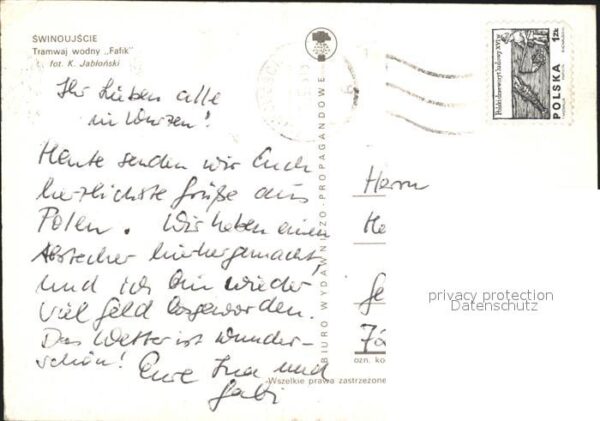 ŚWINOUJŚCIE
Tramwaj wodny „Fafik”
fot. K. Jabłoński
Ihr Lieben alle
in Wurzen!
Heute senden wir Euch
herzlichste Grüße aus
Polen. Wir haben einen
Abstecher hierhergemacht,
und ich bin wieder
viel Geld losgeworden.
Das Wetter ist wunder-
schön! Eure Ina und
Gabi
BIURO WYDAWNICZO-PROPAGANDOWE
Herrn
He
Ge
ozn. ko
Wszelkie prawa zastrzeżone
Polski drzeworyt ludowy XVI w.
1zł
POLSKA
privacy protection
Datenschutz